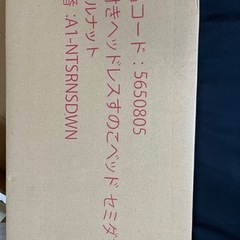 コード：5650805
付きヘッドレスすのこベッド セミダ
ルナット
番：A1-NTSRNSDWN